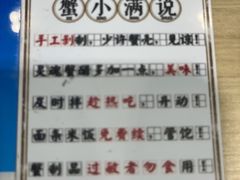 蟹小满说
手工剥制，少许蟹壳，见谅
是魂蟹醋多加一点，美味
及时拌趁热吃，并动
面条米饭免费续，管饱
蟹制品过敏者勿食用